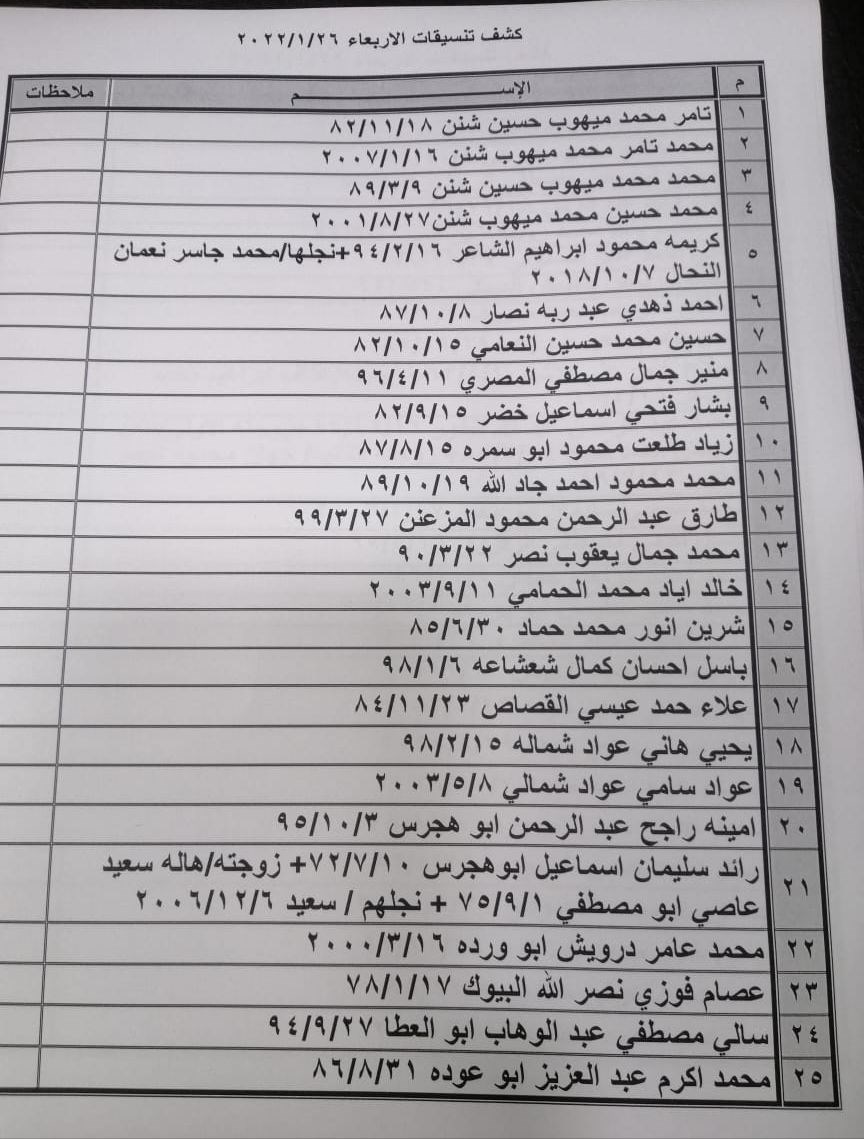 كشف تنسيقات الاربعاء ٢٠٢٢/١/٢٦
م الإســــم ملاحظات
١ تامر محمد ميهوب حسين شنن ٨٢/١١/١٨
٢ محمد تامر محمد ميهوب شنن ٢٠٠٧/١/١٦
٣ محمد محمد ميهوب حسين شنن ٨٩/٣/٩
٤ محمد حسين محمد ميهوب شنن٢٠٠١/٨/٢٧
٥ كريمه محمود ابراهيم الشاعر ٩٤/٢/١٦+نجلها/محمد جاسر نعمان
النحال ٢٠١٨/١٠/٧
٦ احمد ذهدي عبد ربه نصار ٨٧/١٠/٨
٧ حسين محمد حسين النعامي ٨٢/١٠/١٥
٨ منير جمال مصطفي المصري ٩٦/٤/١١
٩ بشار فتحي اسماعيل خضر ٨٢/٩/١٥
١٠ زياد طلعت محمود ابو سمره ٨٧/٨/١٥
١١ محمد محمود احمد جاد الله ٨٩/١٠/١٩
١٢ طارق عبد الرحمن محمود المزعنن ٩٩/٣/٢٧
١٣ محمد جمال يعقوب نصر ٩٠/٣/٢٢
١٤ خالد اياد محمد الحمامي ٢٠٠٣/٩/١١
١٥ شرين انور محمد حماد ٨٥/٦/٣٠
١٦ باسل احسان كمال شعشاعه ٩٨/١/٦
١٧ علاء حمد عيسي القصاص ٨٤/١١/٢٣
١٨ يحيي هاني عواد شماله ٩٨/٢/١٥
١٩ عواد سامي عواد شمالي ٢٠٠٣/٥/٨
٢٠ امينه راجح عبد الرحمن ابو هجرس ٩٥/١٠/٣
٢١ رائد سليمان اسماعيل ابوهجرس ٧٢/٧/١٠+ زوجته/هاله سعيد
عاصي ابو مصطفي ٧٥/٩/١ + نجلهم / سعيد ٢٠٠٦/١٢/٦
٢٢ محمد عامر درويش ابو ورده ٢٠٠٠/٣/١٦
٢٣ عصام فوزي نصر الله البيوك ٧٨/١/١٧
٢٤ سالي مصطفي عبد الوهاب ابو العطا ٩٤/٩/٢٧
٢٥ محمد اكرم عبد العزيز ابو عوده ٨٦/٨/٣١